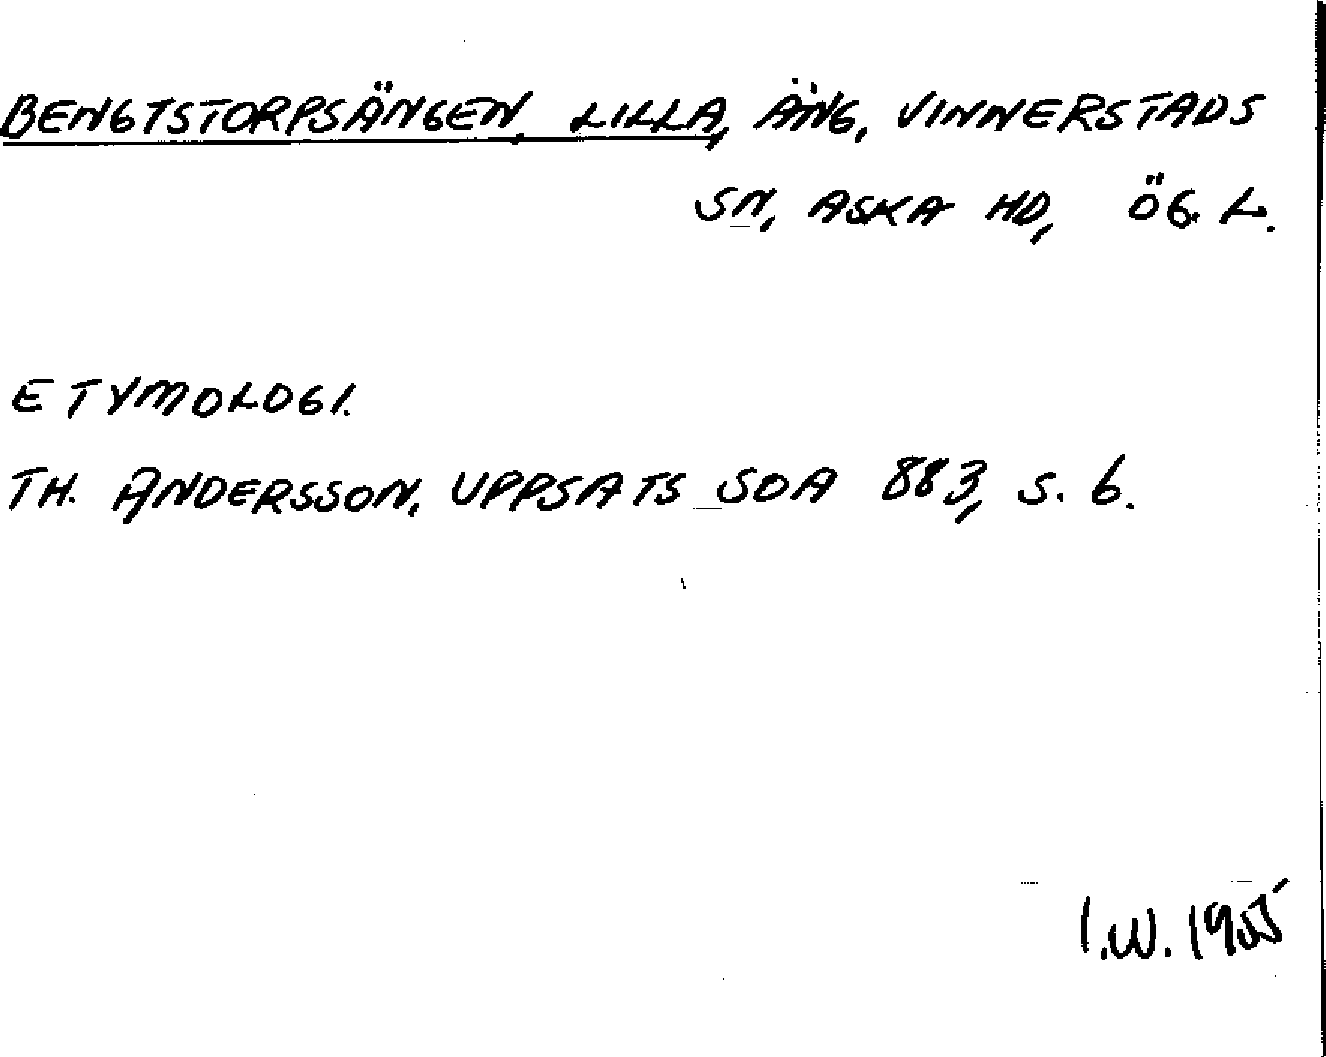 BENGTSTORPSÄNGEN, LILLA, ÄNG, VINNERSTADS
SN, ASKA HD, ÖG. L.
ETYMOLOGI.
TH. ANDERSSON, UPPSATS SOA 883, S. 6.
I.W.